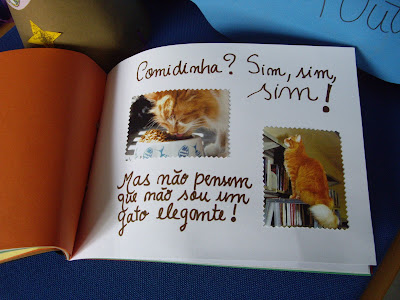 Comidinha? Sim, sim,
sim!
Mas não pensem
que não sou um
gato elegante!